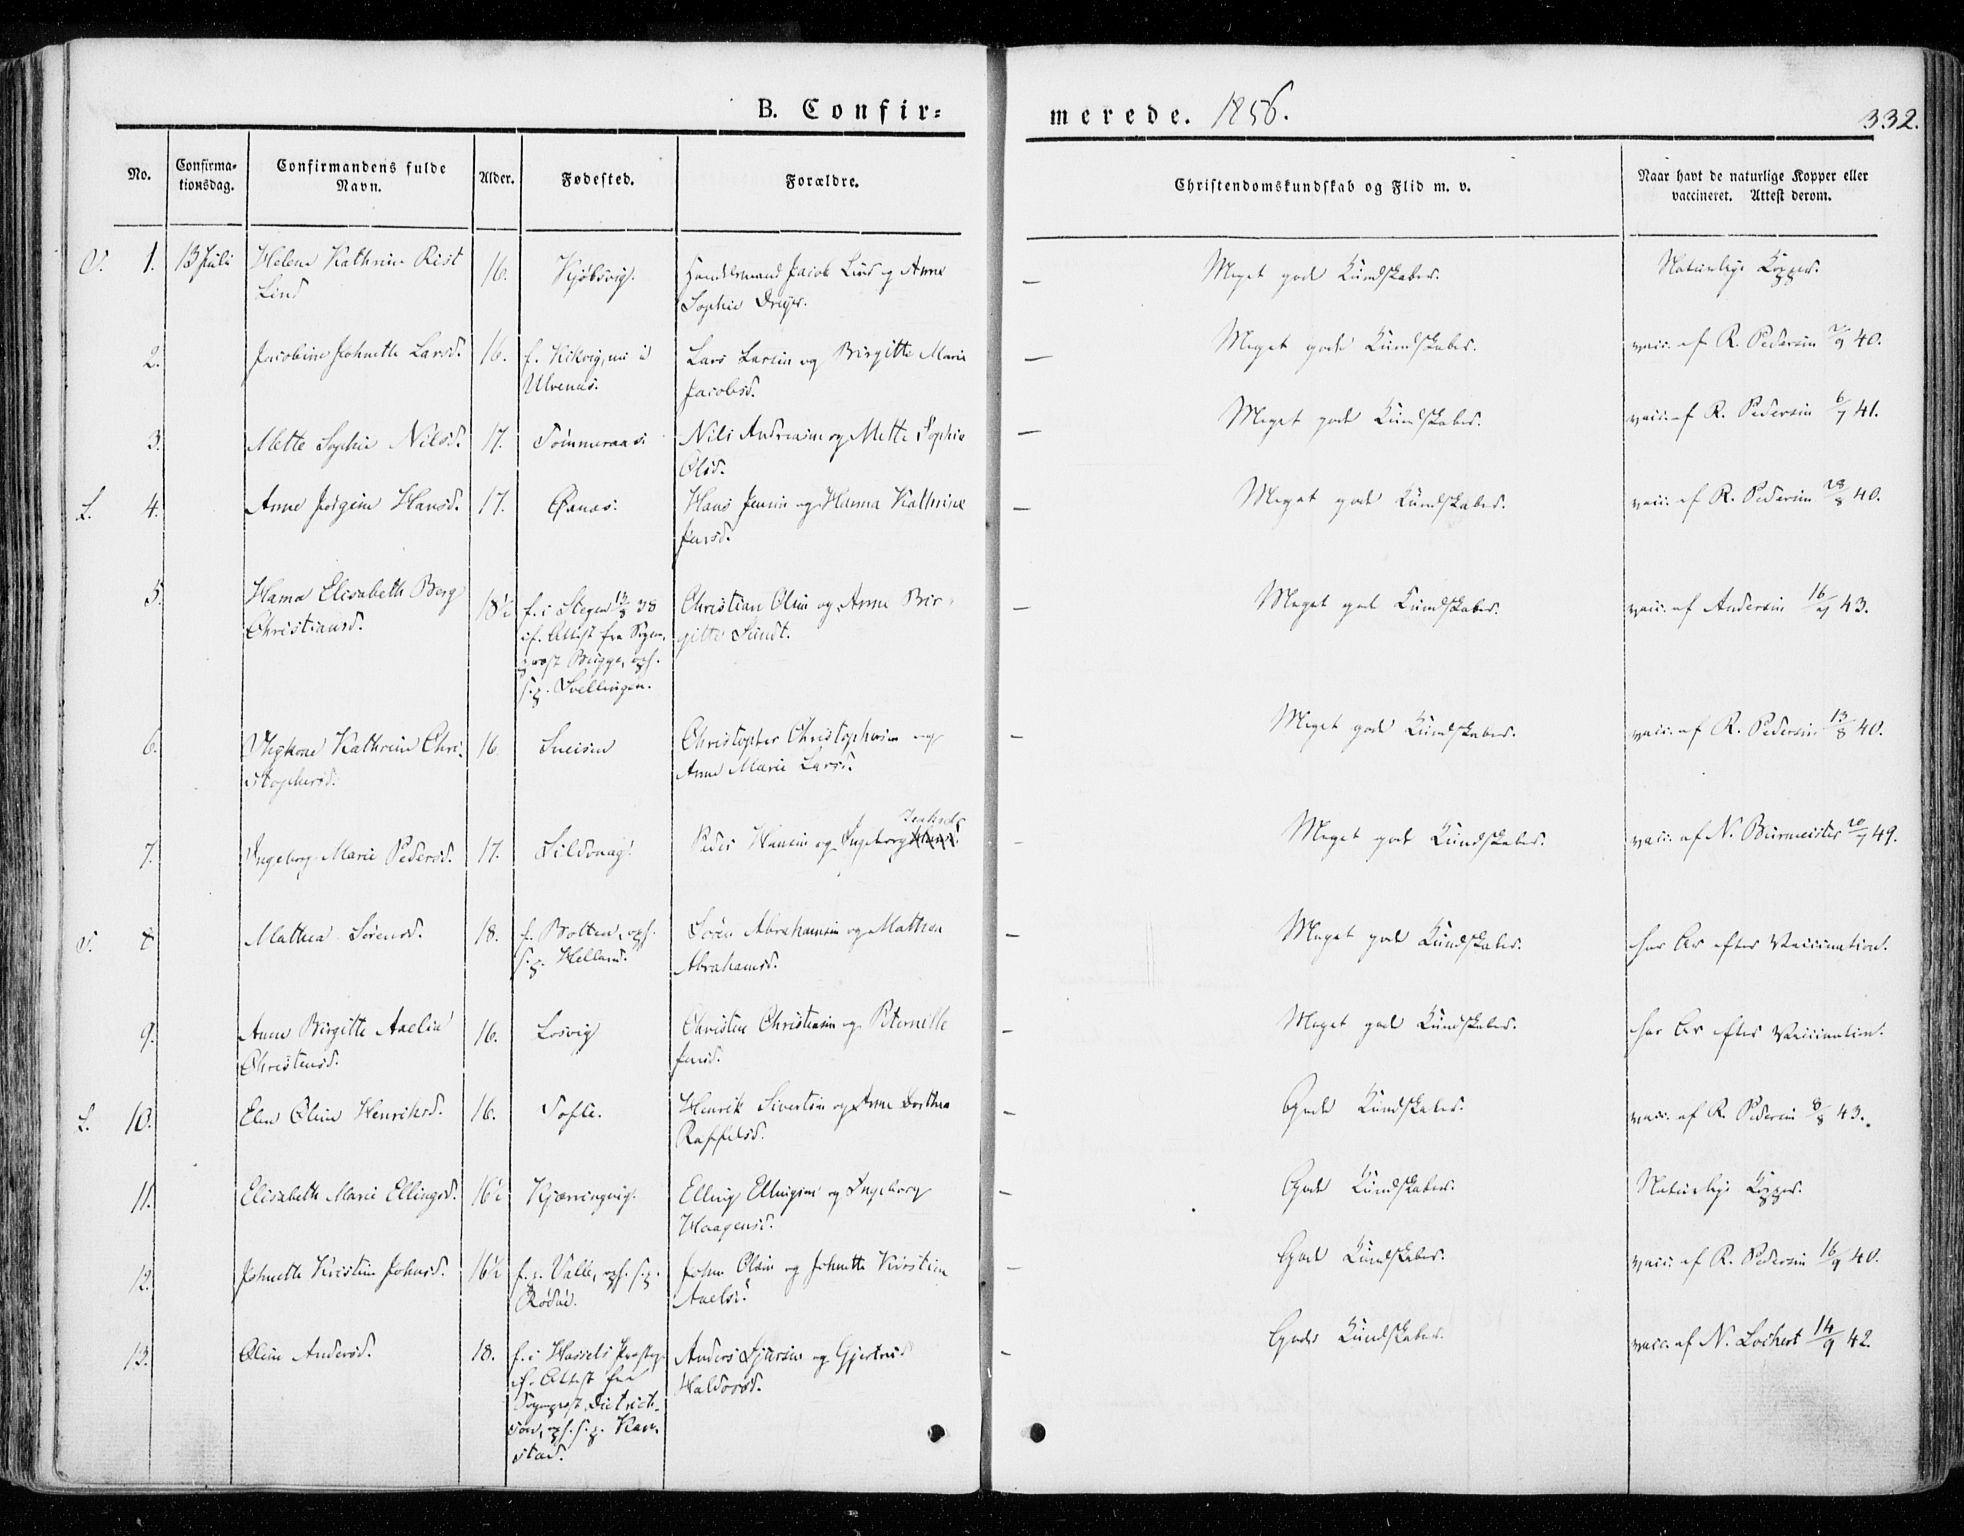 B. Confir=
merede. 1856.
332.
No.
Confirma-
tionsdag.
Confirmandens fulde
Navn.
Alder.
Fødested.
Forældre.
Christendomskundskab og Flid m. v.
Naar havt de naturlige Kopper eller
vaccineret. Attest derom.
1. 13 Juli Helene Kathrine Rist
Lind
16. Kjøbsvig.
Handelsmand Jacob Lind og Anne
Sophie Dreyer.
Meget gode Kundskaber.
Naturlige Kopper.
2. Jacobine Johnette Larsd. 16.
f. Kikvig, nu i
Ulvenæs.
Lars Larsen og Birgitte Marie
Jacobsd.
Meget gode Kundskaber.
vacc. af R. Pedersen 40.
3. Mette Sophie Nilsd. 17. Tømmeraas.
Nils Andreasen og Mette Sophie
Olsd.
Meget gode Kundskaber.
vacc. af R. Pedersen 6/7 41.
L. 4. Anne Jørgine Hansd. 17. Øanæs.
Hans Jensen og Hanna Kathrine
Jensd.
Meget gode Kundskaber.
vacc. af R. Pedersen 28/8 40.
5. Hanna Elisabeth Berg
Christiansd.
18½ f. i Stegen 38
Attest fra
Brügge, oph.
s. p. Svellingen.
Christian Olsen og Anne Bir-
gitte Sundt.
Meget god Kundskaber.
vacc. af Andersen 43.
6. Kathrine Chri-
stophersd.
16. Sneisen
Christopher Christophersen og
Anne Marie Larsd.
Meget gode Kundskaber.
vacc. af R. Pedersen 13/8 40.
7. Ingeborg Marie Pedersd. 17. Sildvaag.
Peder Hansen og Ingeborg
Meget gode Kundskaber.
vacc. af N. Burmeister 20/7 49.
8 Mathea Sørensd. 18.
f. Botten, oph.
s. p. Helland.
Søren Abrahamsen og Mathea
Abrahamsd.
Meget gode Kundskaber.
har Ar efter Vaccination.
9. Anne Birgitte Axelia
Christensd.
16. Losvig
Christen Christensen og Peternille
Jensd.
Meget gode Kundskaber.
har Ar efter Vaccination.
L. 10. Elen Oline Henriksd. 16. Tofte.
Henrik Sivertsen og Anne Dorthea
Raffelsd.
Gode Kundskaber.
vacc. af R. Pedersen 8/8 43.
11. Elisabeth Marie Ellingsd. 16½ Kjærringvig.
Elling Ellingsen og Ingeborg
Haagensd.
Gode Kundskaber.
Naturlige Kopper.
12. Johnette Kristine Johnsd. 16½
f. p. Valle, oph. s. p.
Rødøe.
John Olsen og Johnette Kirstine
Axelsd.
God Kundskaber.
vacc. af R. Pedersen 16/9 40.
13. Oline Andersd. 18.
f. i Hassels Præstg.
Attest fra
Dietrich-
son, oph. s. p. Kan-
stad.
Anders og Gjertrud
Haldorsd.
Gode Kundskaber.
vacc. af N. Lochert 14/9 42.